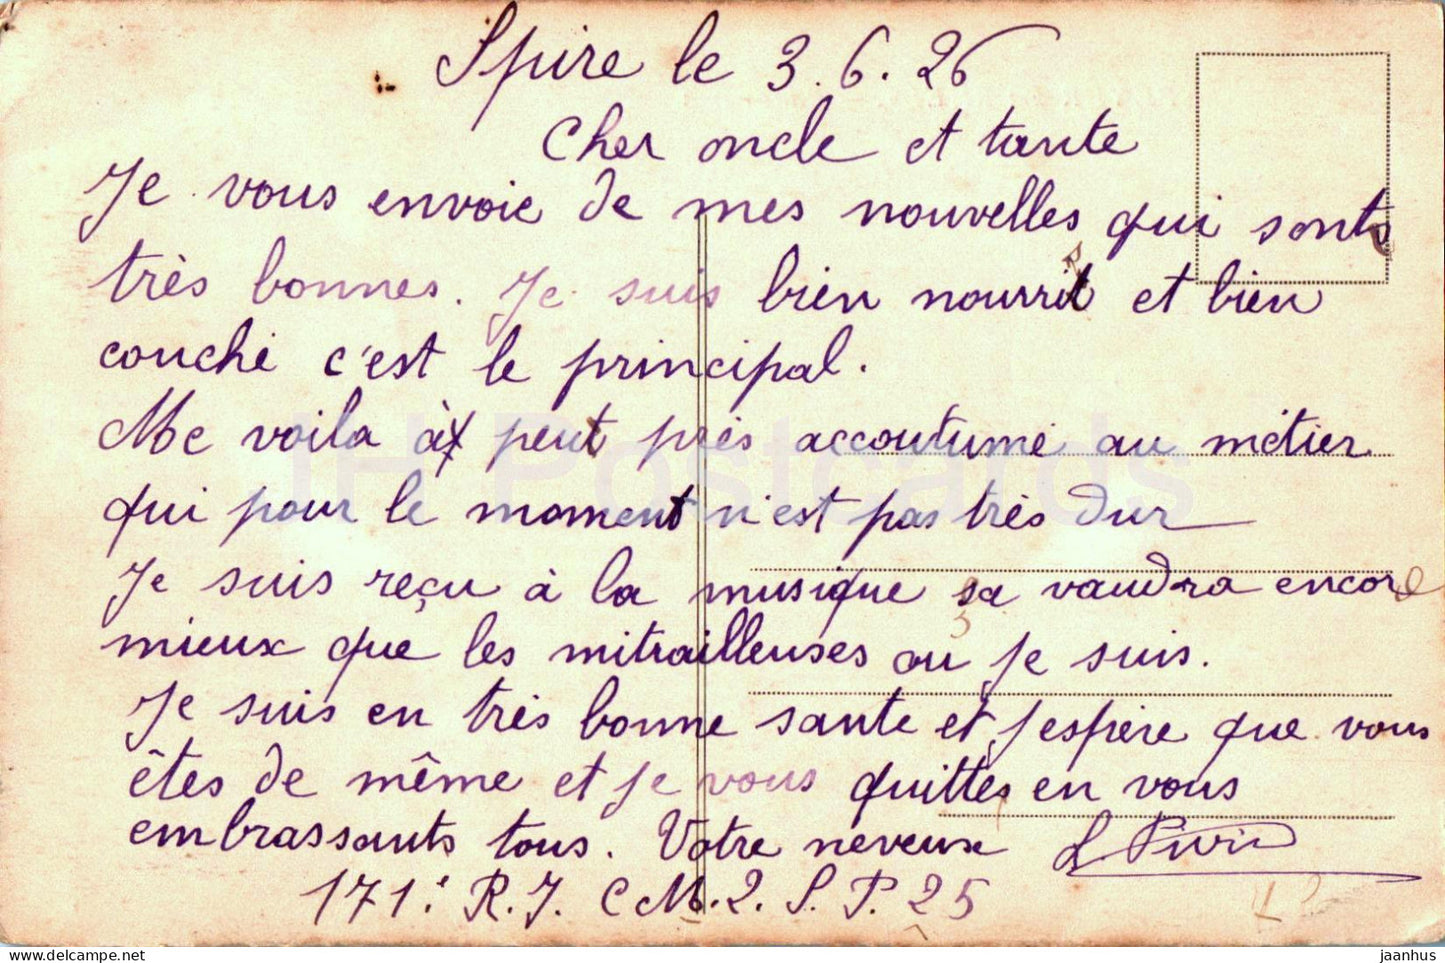 Spire le 3.6.26
Cher oncle et tante
Je vous envoie de mes nouvelles qui sonts
très bonnes. Je suis bien nourrit et bien
couché c'est le principal.
Me voila à peut près accoutumé au métier
qui pour le moment n'est pas très dur
Je suis reçu à la musique sa vaudra encore
mieux que les mitrailleuses ou je suis.
Je suis en très bonne sante et j'espère que vous
êtes de même et je vous quittes en vous
embrassants tous. Votre neveux
171e R.I. C M.2. S.P. 25
IH Postcards
jaanhus